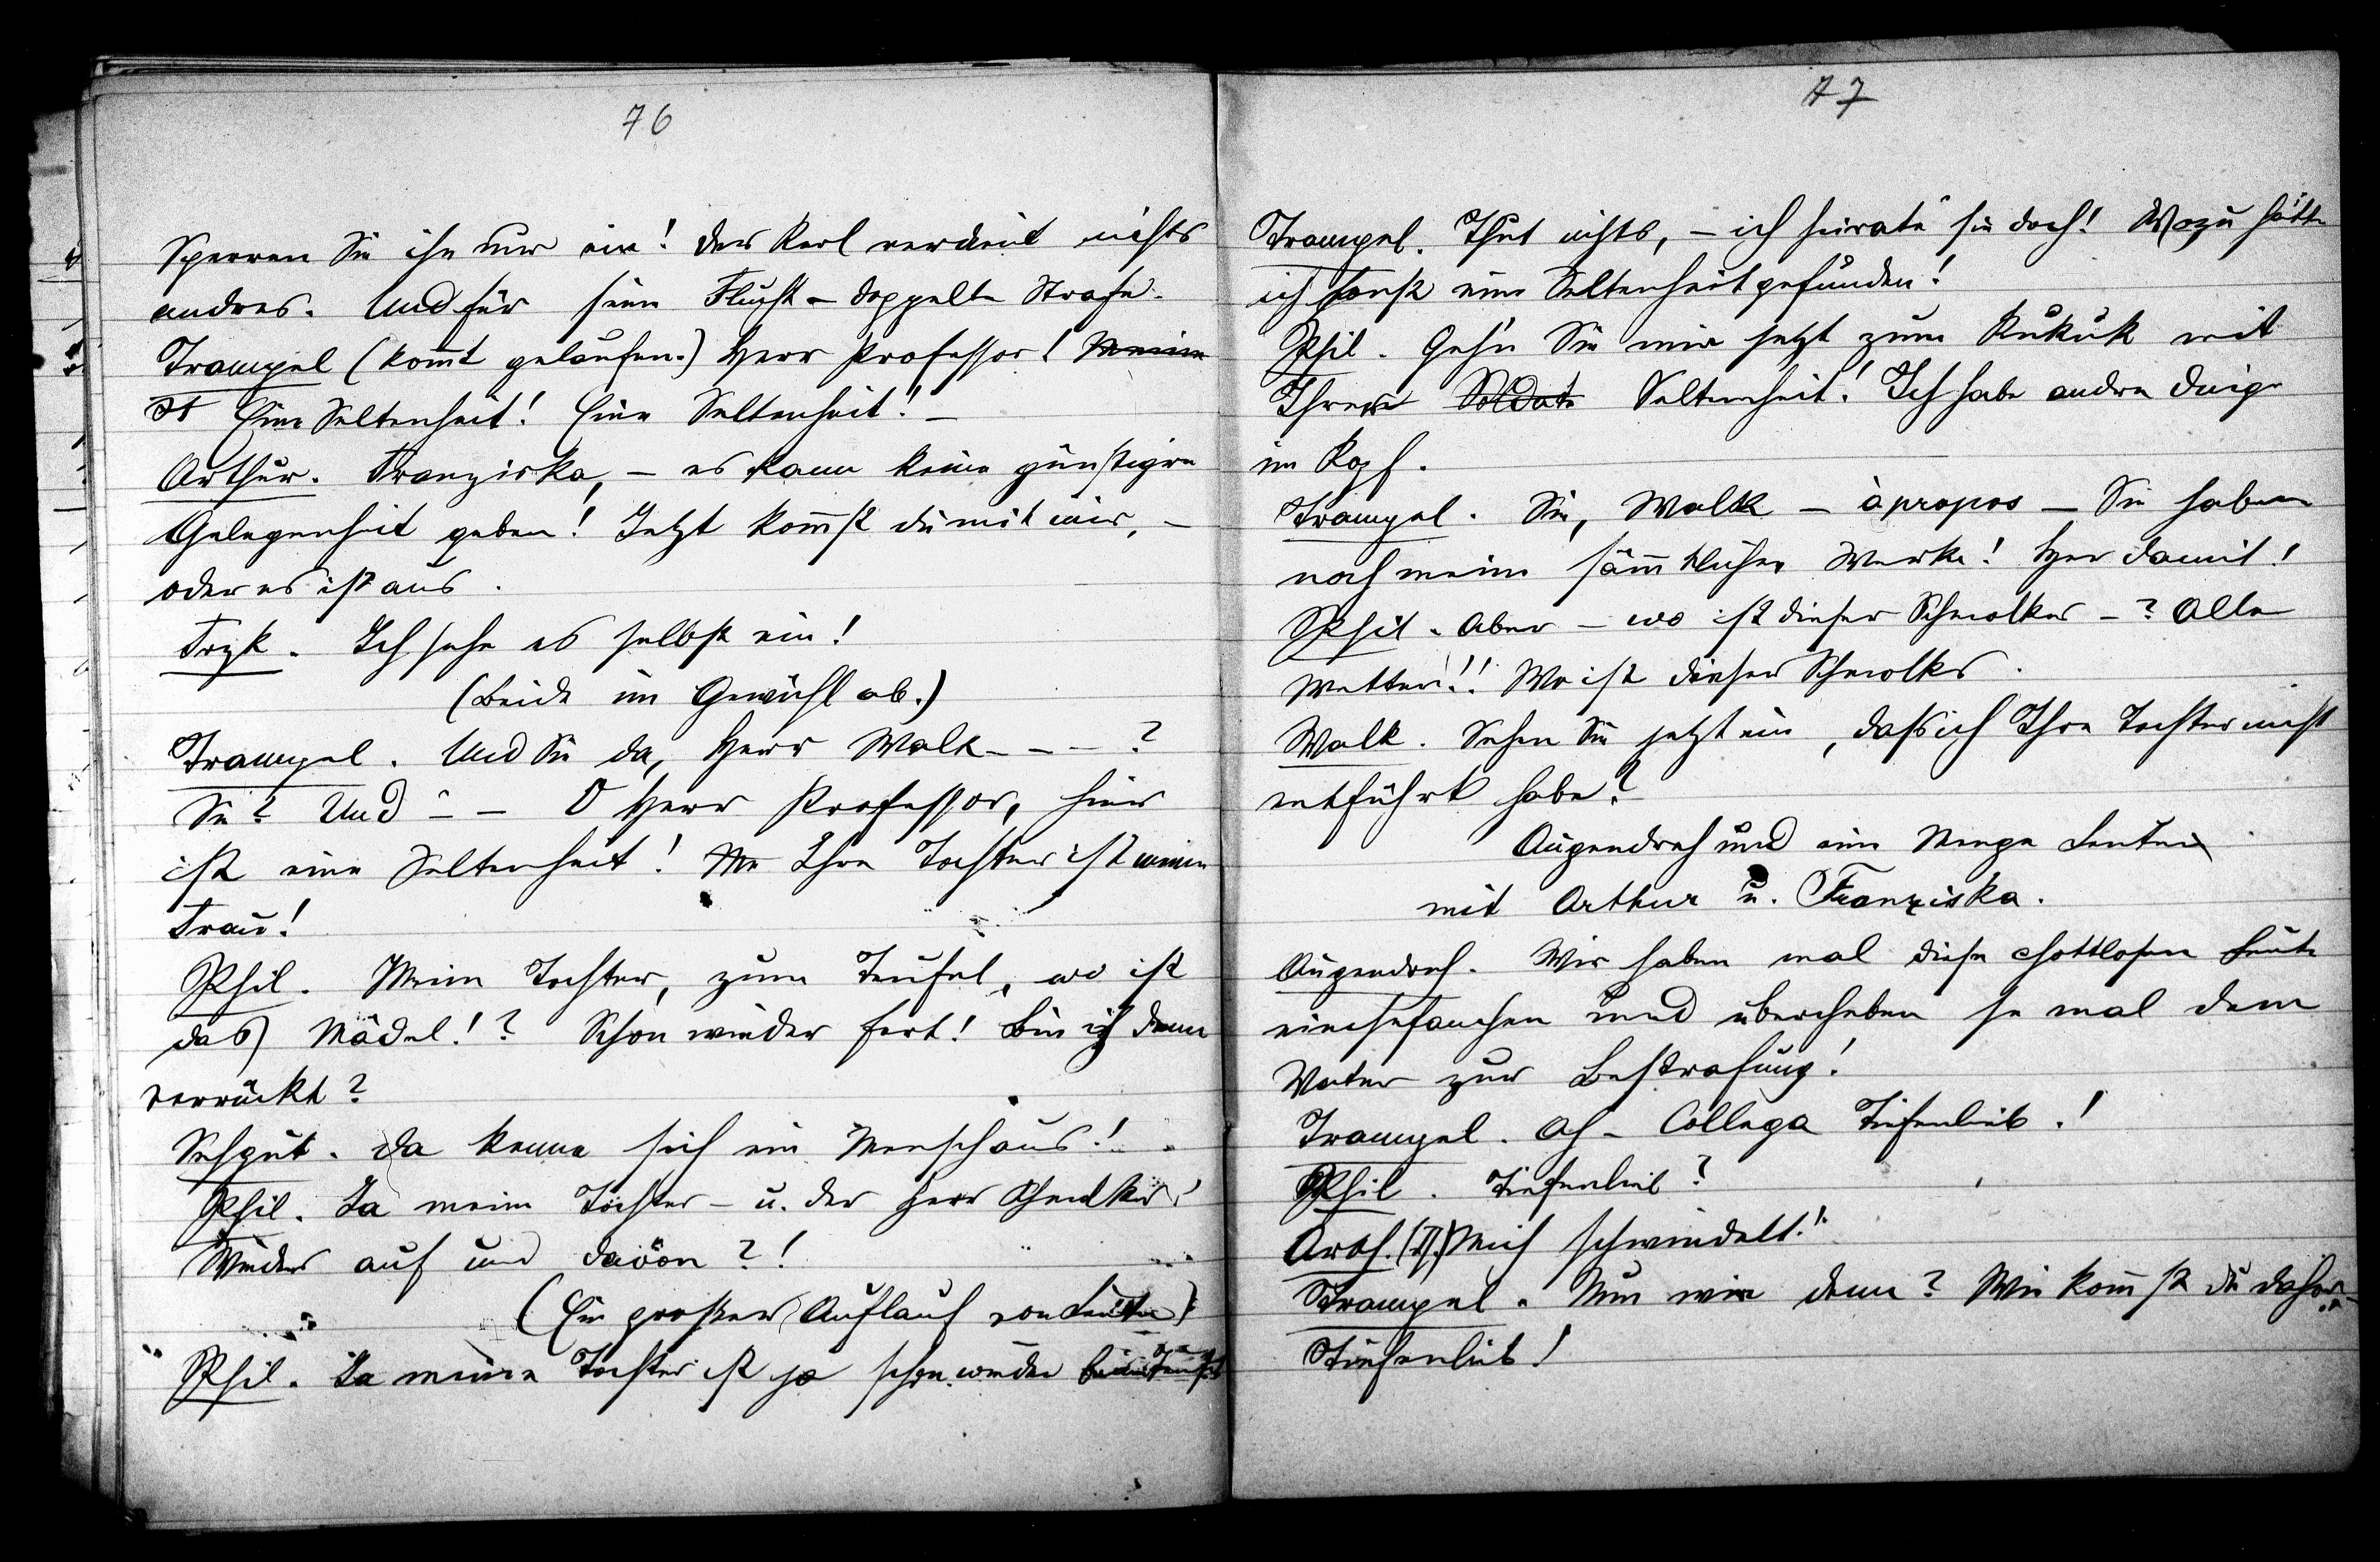 76
Sperren Sie ihn nur ein! Der Kerl verdient nichts
andres. Und für seine Flucht – doppelte Strafe.
Trampel (kommt gelaufen.) Herr Professor! Meine
Eine Seltenheit! Eine Seltenheit! –
Arthur. Franziska, – es kann keine günstigere
Gelegenheit geben! Jetzt kommst du mit mir, –
oder es ist aus.
Frzk. Ich sehe es selbst ein!
(Beide im Gewühl ab.)
Trampel. Und Sie da, Herr Walk – – – ?
Sie? Und – – O Herr Professor, hier
ist eine Seltenheit! Ihre Tochter ist meine
Frau!
Phil. Meine Tochter, zum Teufel, wo ist
das Mädel!? Schon wieder fort! Bin ich denn
verrückt?
Sehgut. Da kenne sich ein Mensch aus!
Phil. Ja meine Tochter – u. der Herr Schmolker!
Wieder auf und davon?!
(Ein großer Auflauf von Leuten)
Phil. Ja meine Tochter ist ja schon wieder beim Teufel
77
Trampel. Thut nichts, – ich heirate sie doch! Wozu hätte
ich sonst eine Seltenheit gefunden!
Phil. Geh'n Sie mir jetzt zum Kukuk mit
Ihrer Soldat Seltenheit! Ich habe andre Dinge
im Kopf.
Trampel. Sie, Walk – àpropos – Sie haben
noch meine sämmtlichen Werke! Her damit!
Phil. Aber – wo ist dieser Schmolker – ? Alle
Wetter!! Wo ist dieser Schmolker.
Walk. Sehen Sie jetzt ein, daß ich Ihre Tochter nicht
entführt habe?
Augendreh und eine Menge Leute
mit Arthur u. Franziska.
Augendreh. Wir haben mal diese chottlosen Leute
einchefanchen und übercheben se mal dem
Vater zur Bestrafung!
Trampel. Ah – Collega Tiefenlieb!
Phil. Tiefenlieb?
Arth. Mich schwindelt!
Trampel. Nun wie denn? Wie kommst du daher –
Tiefenlieb!